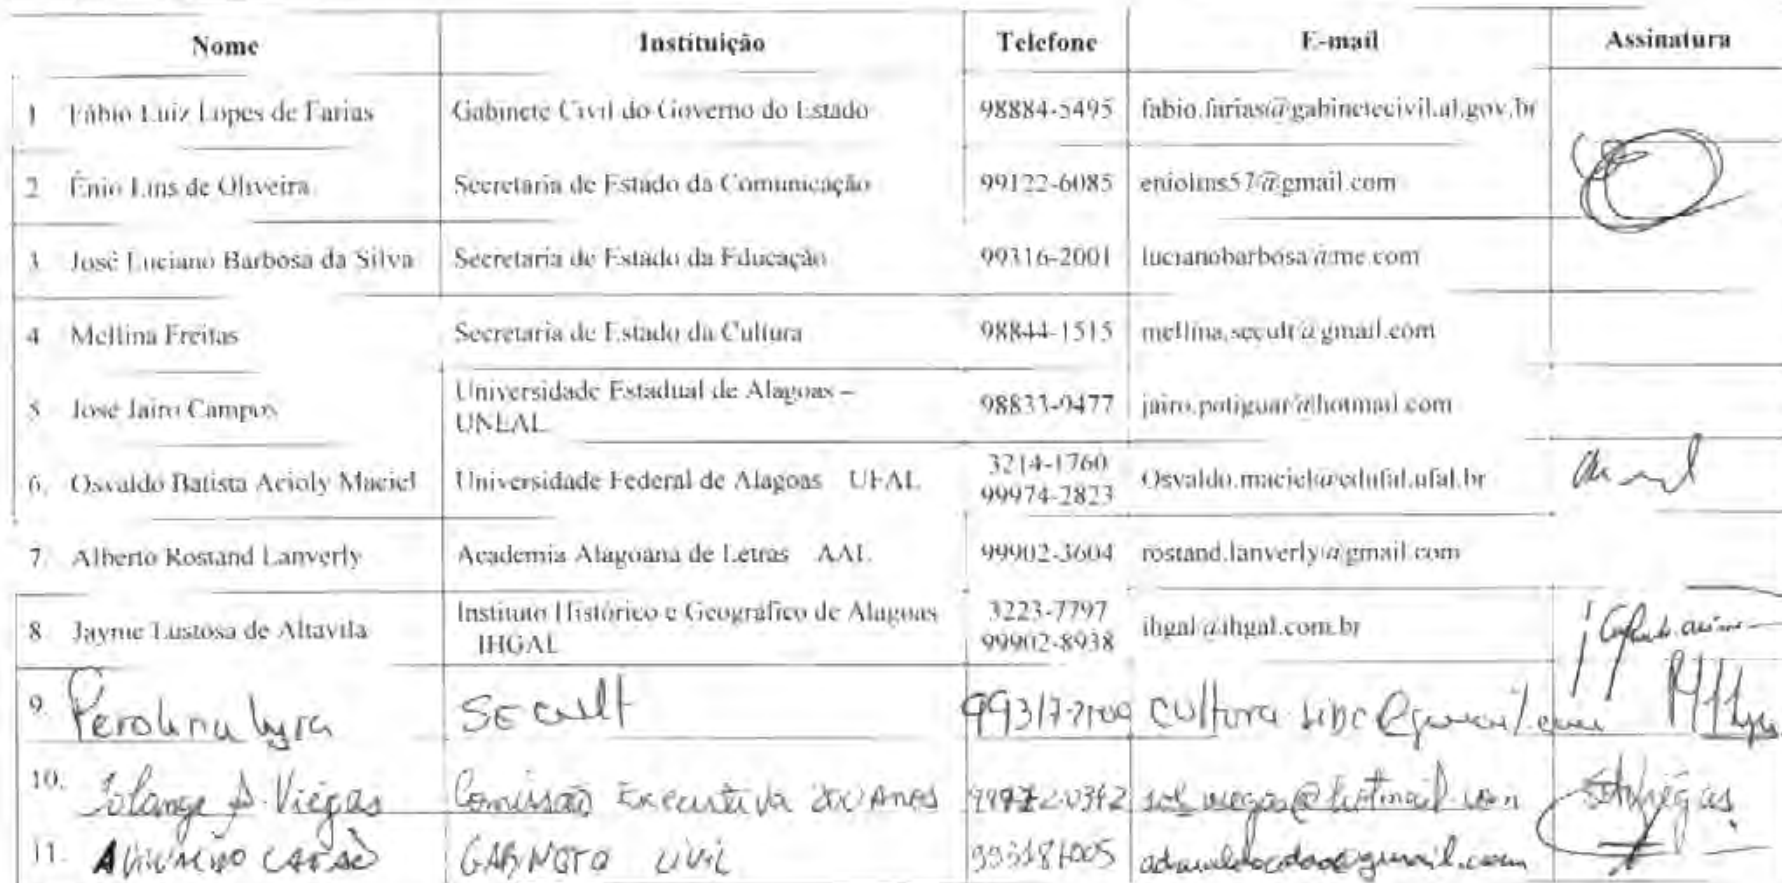 Nome Instituição Telefone E-mail Assinatura
1 Fábio Luiz Lopes de Farias Gabinete Civil do Governo do Estado 98884-5495 fabio.farias@gabinetecivil.al.gov.br
2 Ênio Lins de Oliveira Secretaria de Estado da Comunicação 99122-6085 eniolins57@gmail.com
3. José Luciano Barbosa da Silva Secretaria de Estado da Educação 99316-2001 lucianobarbosa@me.com
4 Mellina Freitas Secretaria de Estado da Cultura 98844-1515 mellina.secult@gmail.com
5 José Jairo Campos Universidade Estadual de Alagoas –
UNEAL 98833-9477 jairo.potiguar@hotmail.com
6. Osvaldo Batista Acioly Maciel Universidade Federal de Alagoas UFAL 3214-1760
99974-2823 Osvaldo.maciel@edufal.ufal.br
7. Alberto Rostand Lanverly Academia Alagoana de Letras AAL 99902-3604 rostand.lanverly@gmail.com
8. Jayme Lustosa de Altavila Instituto Histórico e Geográfico de Alagoas
IHGAL 3223-7797
99902-8938 ihgal@ihgal.com.br
9. Perolina Lyra SEcult cultura
10. Solange Viégas Comissão Executiva 200 Anos
11. GABINETE CIVIL